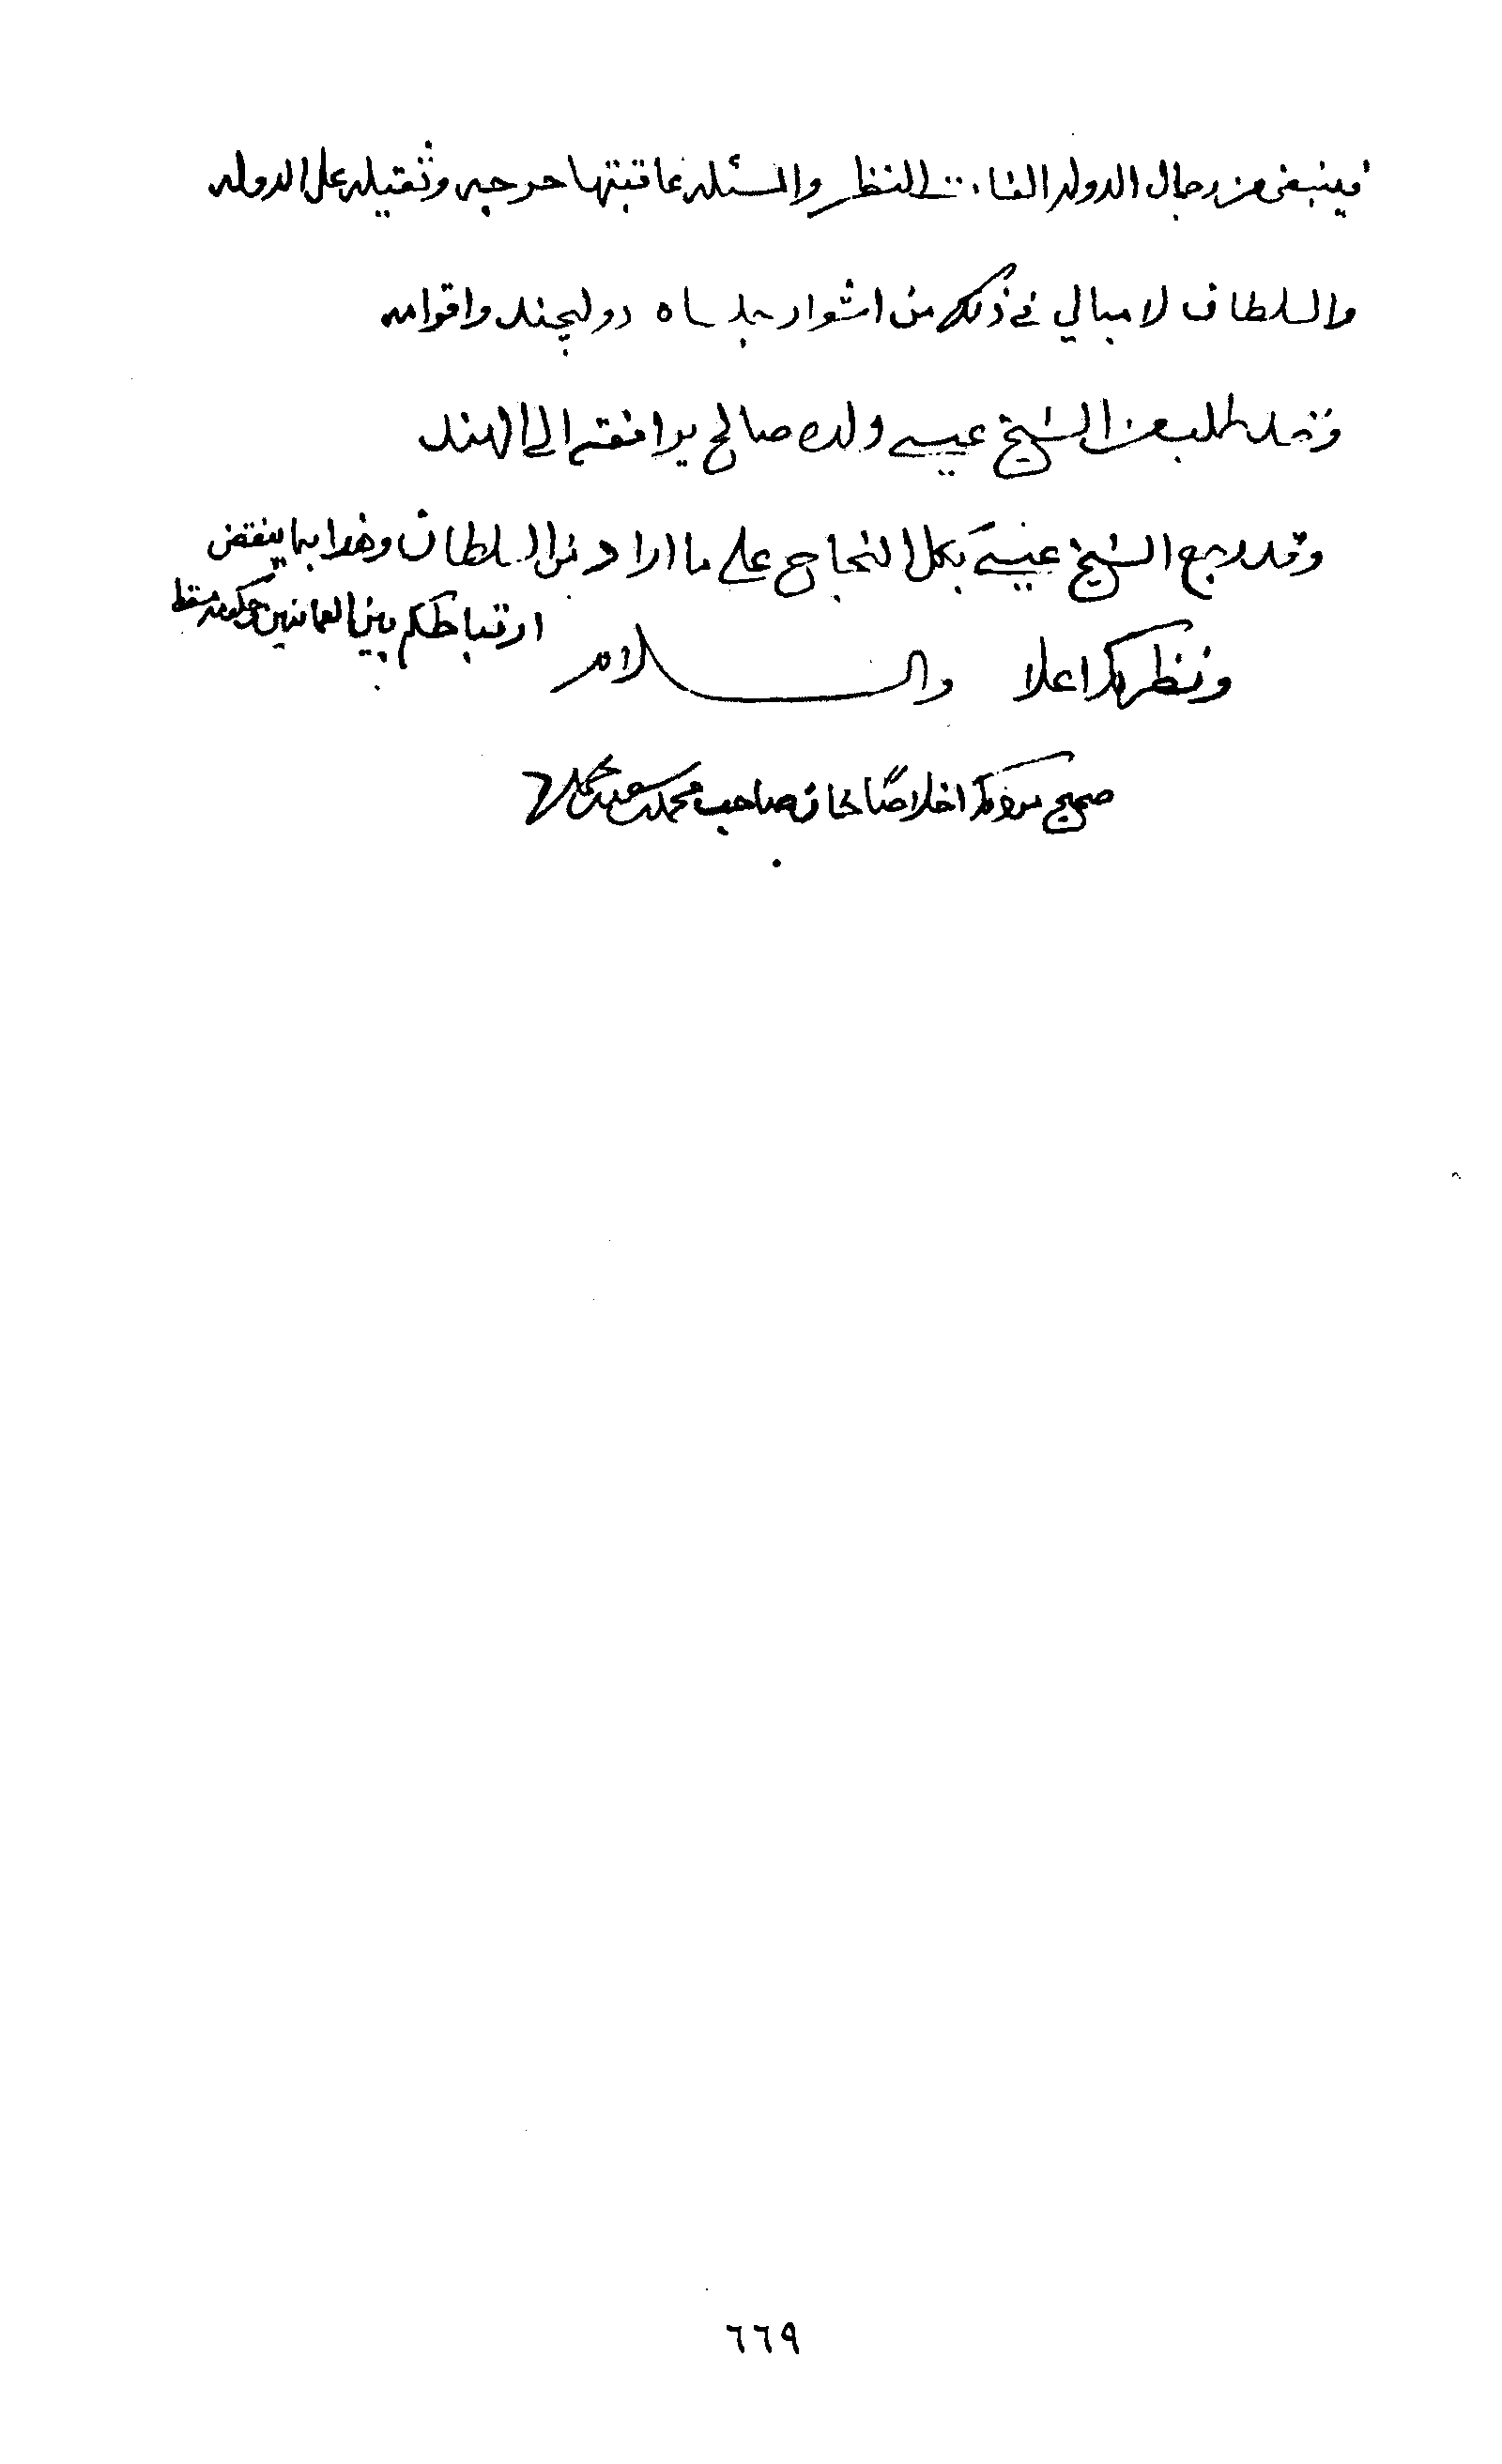 فينبغي من رجال الدوله النظر والمسئله عاقبتها حرجه وثقيله على الدوله
والسلطان لا مبالي في ذلك من اشوار دوليچند واقوامه
وقد طلب من الشيخ عيسى ولده صالح يرافقه الى الهند
وقد رجع الشيخ عيسى بكل النجاح على ما اراد من السلطان وهذا بما ينقض
ارتباطكم بين العمانيين وحكومة مسقط
ونظركم اعلا والسلام
صحيح اخلاصًا خان صاحب محمد
٦٦٩